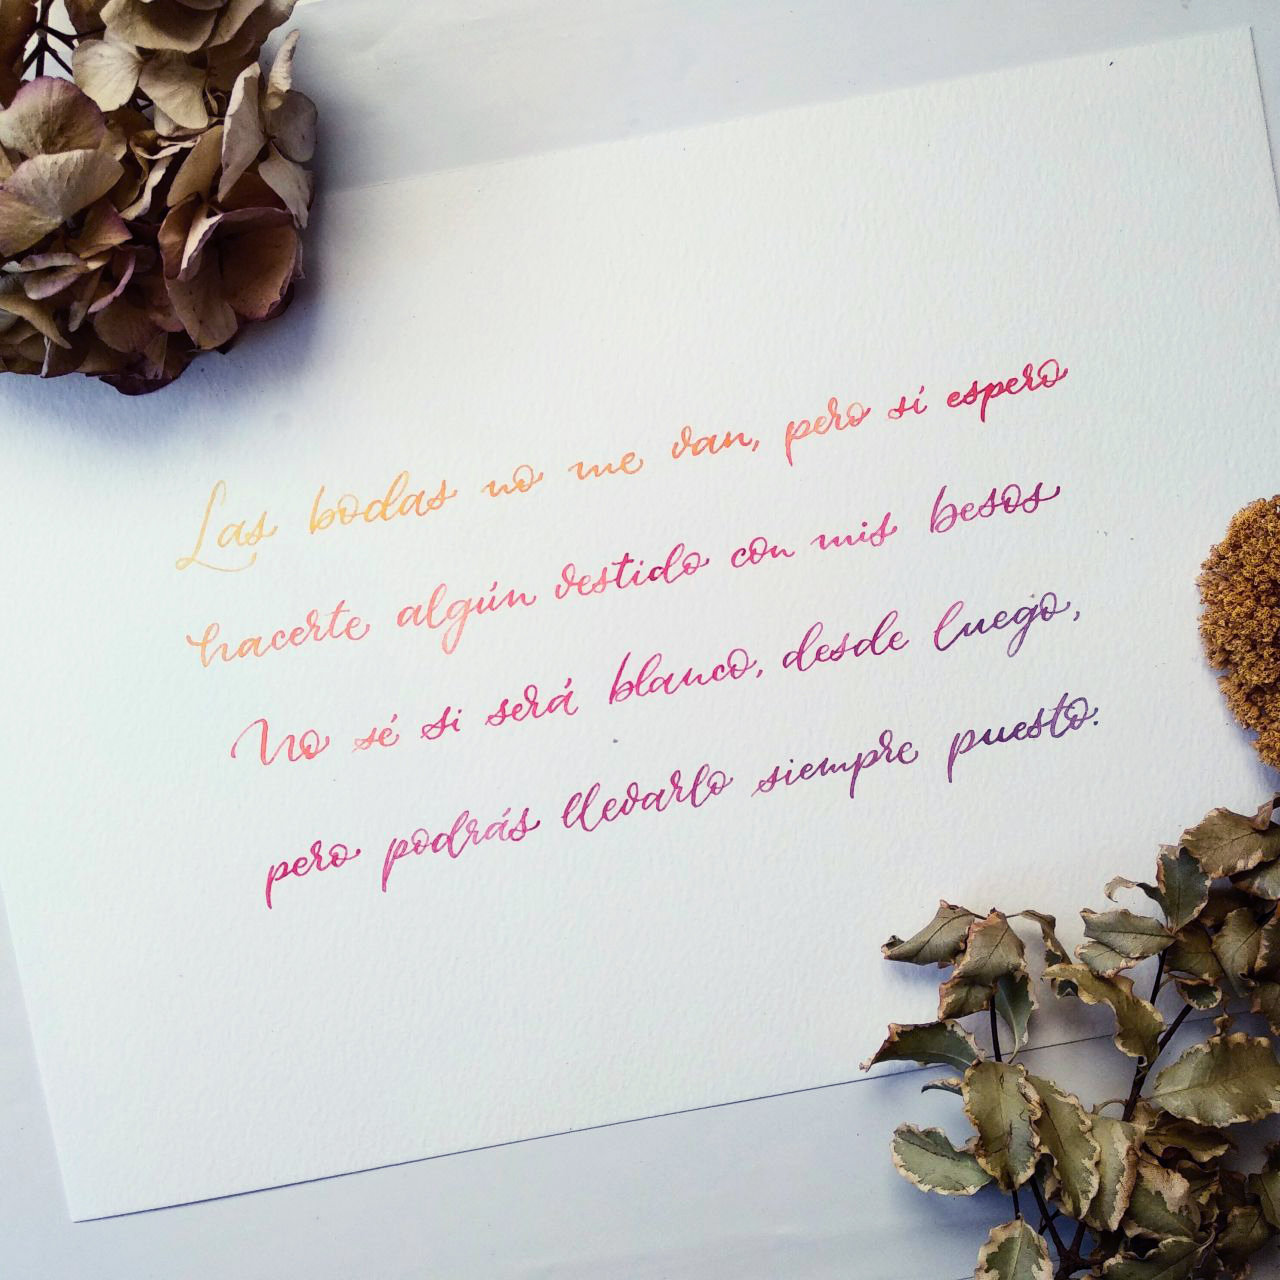 Las bodas no me van, pero sí espero
hacerte algún vestido con mis besos
No sé si será blanco, desde luego,
pero podrás llevarlo siempre puesto.